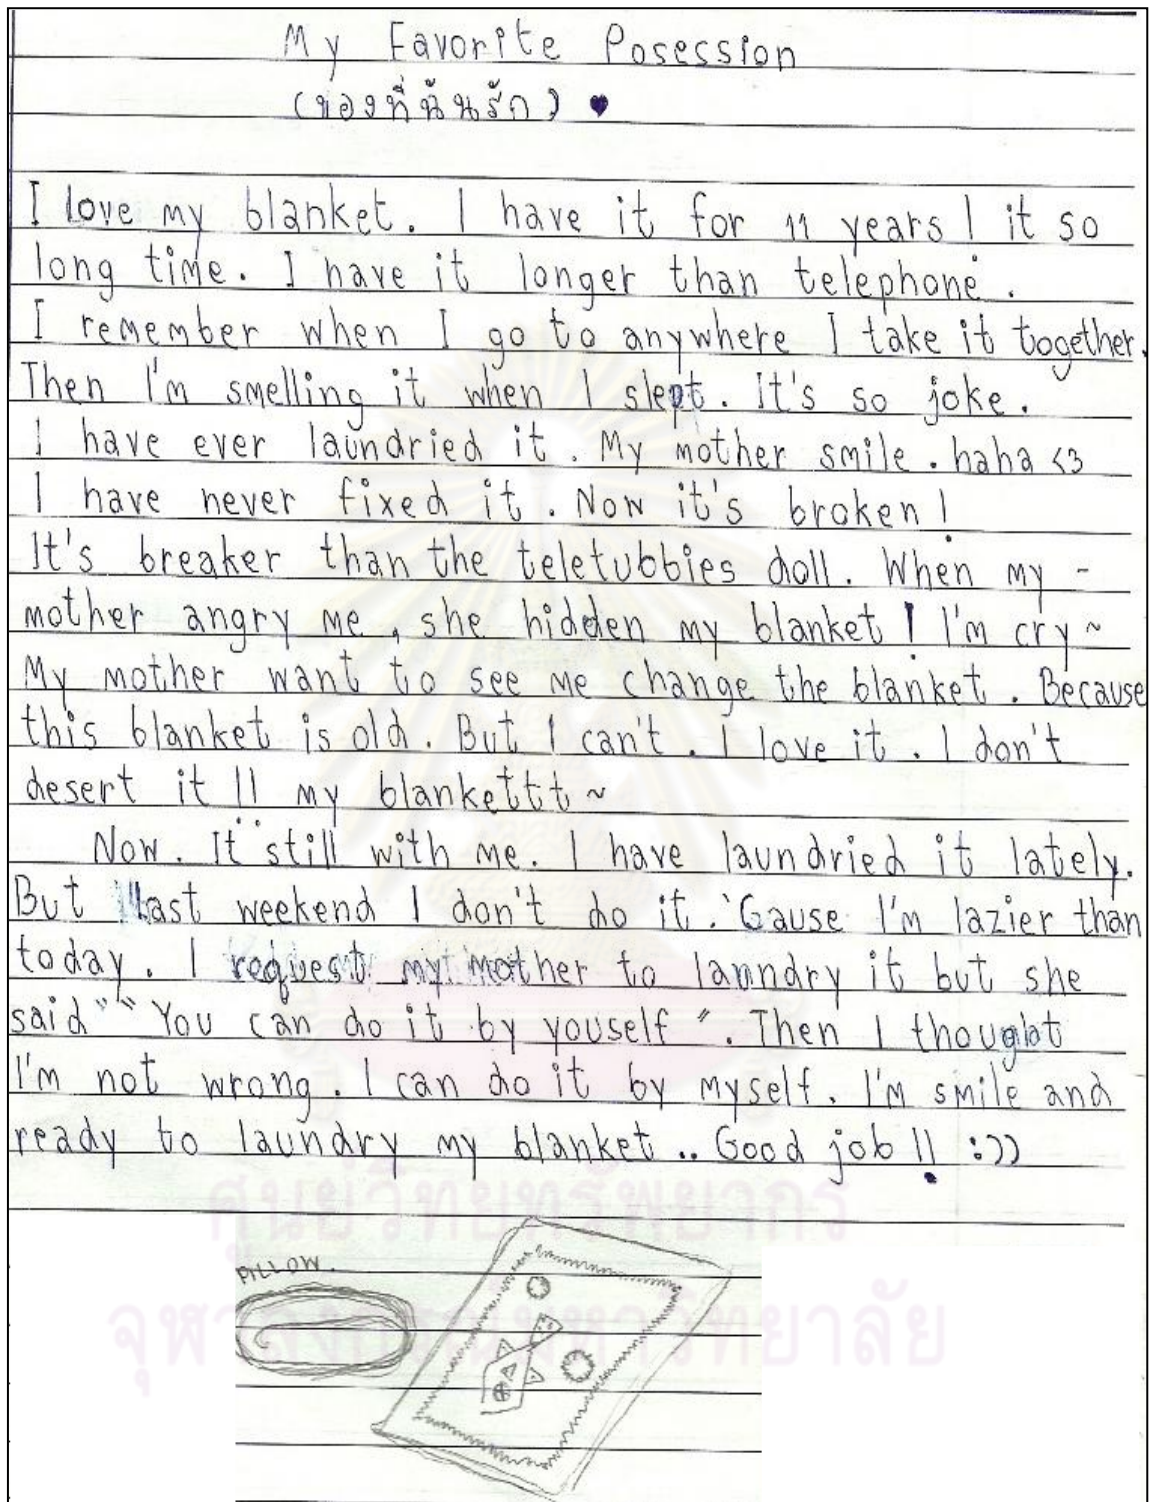 My Favorite Posession
(ของที่ฉันรัก) ♥
I love my blanket. I have it for 11 years! it so
long time. I have it longer than telephone.
I remember when I go to anywhere I take it together.
Then I'm smelling it when I slept. It's so joke.
I have ever laundried it. My mother smile. haha <3
I have never fixed it. Now it's broken!
It's breaker than the teletubbies doll. When my -
mother angry me, she hidden my blanket! I'm cry~
My mother want to see me change the blanket. Because
this blanket is old. But I can't. I love it. I don't
desert it!! my blankettt~
Now. It still with me. I have laundried it lately.
But last weekend I don't do it. 'Gause I'm lazier than
today. I request my mother to lanndry it but she
said "" You can do it by youself ". Then I thought
I'm not wrong. I can do it by myself. I'm smile and
ready to laundry my blanket.. Good job!! :))
ศูนย์วิทยทรัพยากร
PILLOW.
จุฬาลงกรณ์มหาวิทยาลัย